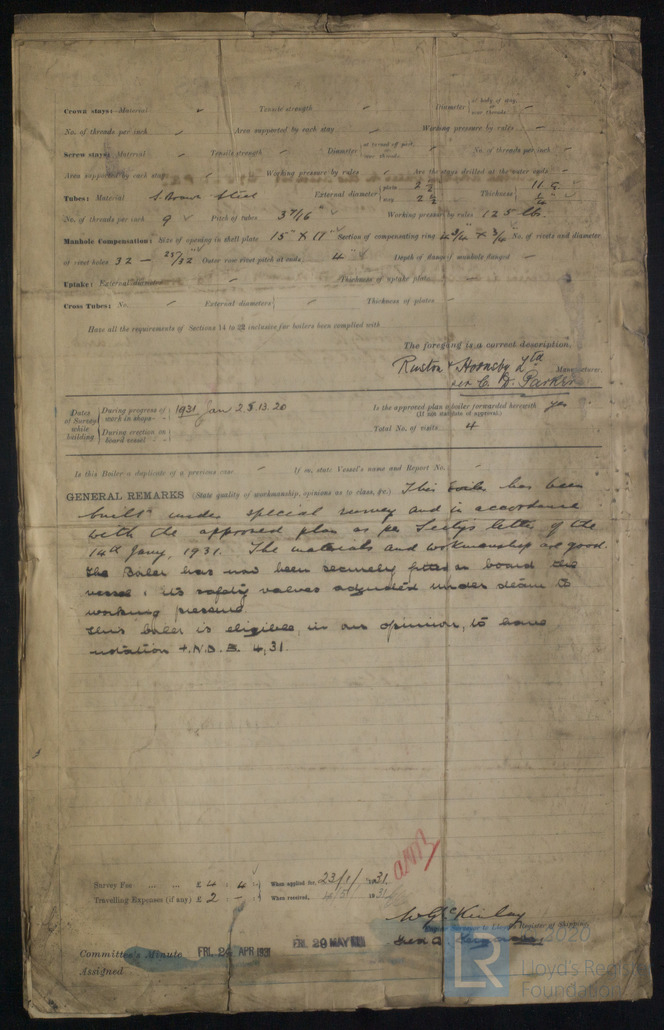 Crown stays: Material ✓ Tensile strength ✓ Diameter {at body of stay, or over threads.
No. of threads per inch ✓ Area supported by each stay ✓ Working pressure by rules ✓
Screw stays: Material ✓ Tensile strength ✓ Diameter {at turned off part, or over threads. No. of threads per inch ✓
Area supported by each stay ✓ Working pressure by rules ✓ Are the stays drilled at the outer ends ✓
Tubes: Material S. Drawn Steel External diameter {plain 2 ½ stay 2 ½ Thickness {11 G.
No. of threads per inch 9 ✓ Pitch of tubes 3 7/16" Working pressure by rules 125 lbs.
Manhole Compensation: Size of opening in shell plate 15" × 11" Section of compensating ring 4 3/4" × 3/4" No. of rivets and diameter
of rivet holes 32 — 25/32" Outer row rivet pitch at ends 4" Depth of flange if manhole flanged ✓
Uptake: External diameter Thickness of uptake plate
Cross Tubes: No. External diameters { Thickness of plates
Have all the requirements of Sections 14 to 22 inclusive for boilers been complied with
The foregoing is a correct description,
Ruston & Hornsby Ltd
per C. D. Parker Manufacturer.
Dates of Survey while building {During progress of work in shops - - 1931 Jan 2. 8. 13. 20
During erection on board vessel - - -
Is the approved plan of boiler forwarded herewith yes
(If not state date of approval.)
Total No. of visits 4
Is this Boiler a duplicate of a previous case If so, state Vessel's name and Report No.
GENERAL REMARKS (State quality of workmanship, opinions as to class, &c.) This boiler has been
built under special survey and in accordance
with the approved plan as per Sectys letter of the
14th Jany, 1931. The materials and workmanship are good.
The Boiler has now been securely fitted on board the
vessel & its safety valves adjusted under steam to
working pressure
This boiler is eligible, in our opinion, to have
notation + N.D.B. 4,31.
Survey Fee ... ... £ 4 : 4 : When applied for, 23/1/1931
Travelling Expenses (if any) £ 2 : - : When received, 4/5/1931
W G McKinlay
Engineer Surveyor to Lloyd's Register of Shipping.
Committee's Minute FRI. 24 APR 1931 FRI. 29 MAY 1931
Assigned
2020
LR
Lloyd's Register
Foundation